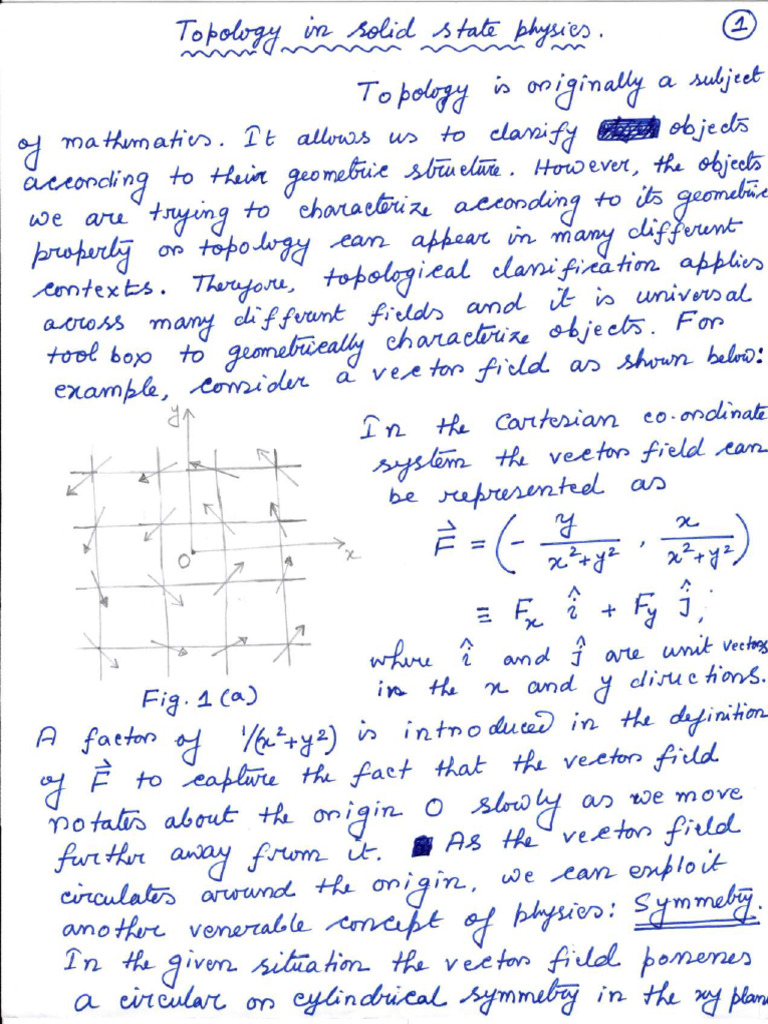 Topology in solid state physics.
1
Topology is originally a subject
of mathematics. It allows us to classify objects
according to their geometric structure. However, the objects
we are trying to characterize according to its geometric
property or topology can appear in many different
contexts. Therefore, topological classification applies
across many different fields and it is universal
tool box to geometrically characterize objects. For
example, consider a vector field as shown below:
y
x
O
Fig. 1(a)
In the Cartesian co-ordinate
system the vector field can
be represented as
F⃗ = (- y/(x²+y²) , x/(x²+y²))
≡ Fₓ î + Fy ĵ,
where î and ĵ are unit vectors
in the x and y directions.
A factor of 1/(x²+y²) is introduced in the definition
of F⃗ to capture the fact that the vector field
rotates about the origin O slowly as we move
further away from it. As the vector field
circulates around the origin, we can exploit
another venerable concept of physics: Symmetry.
In the given situation the vector field possesses
a circular or cylindrical symmetry in the xy plane